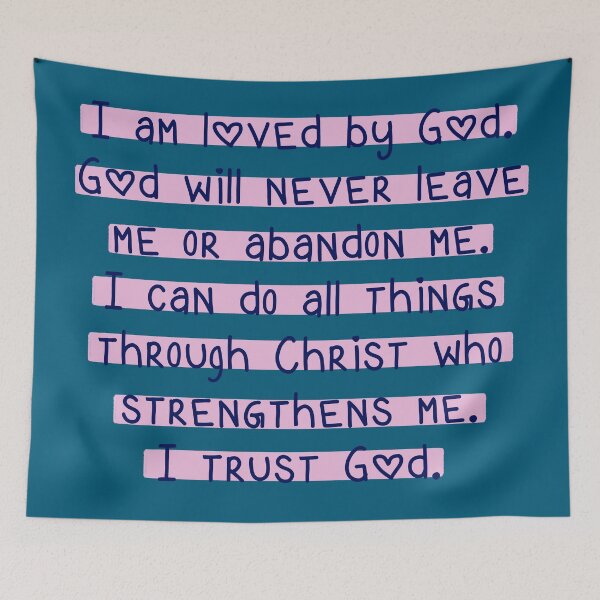 I am loved by God.
God will NEVER leave
ME OR abandon ME.
I can do all things
through Christ who
STRENGTHENS ME.
I TRUST God.